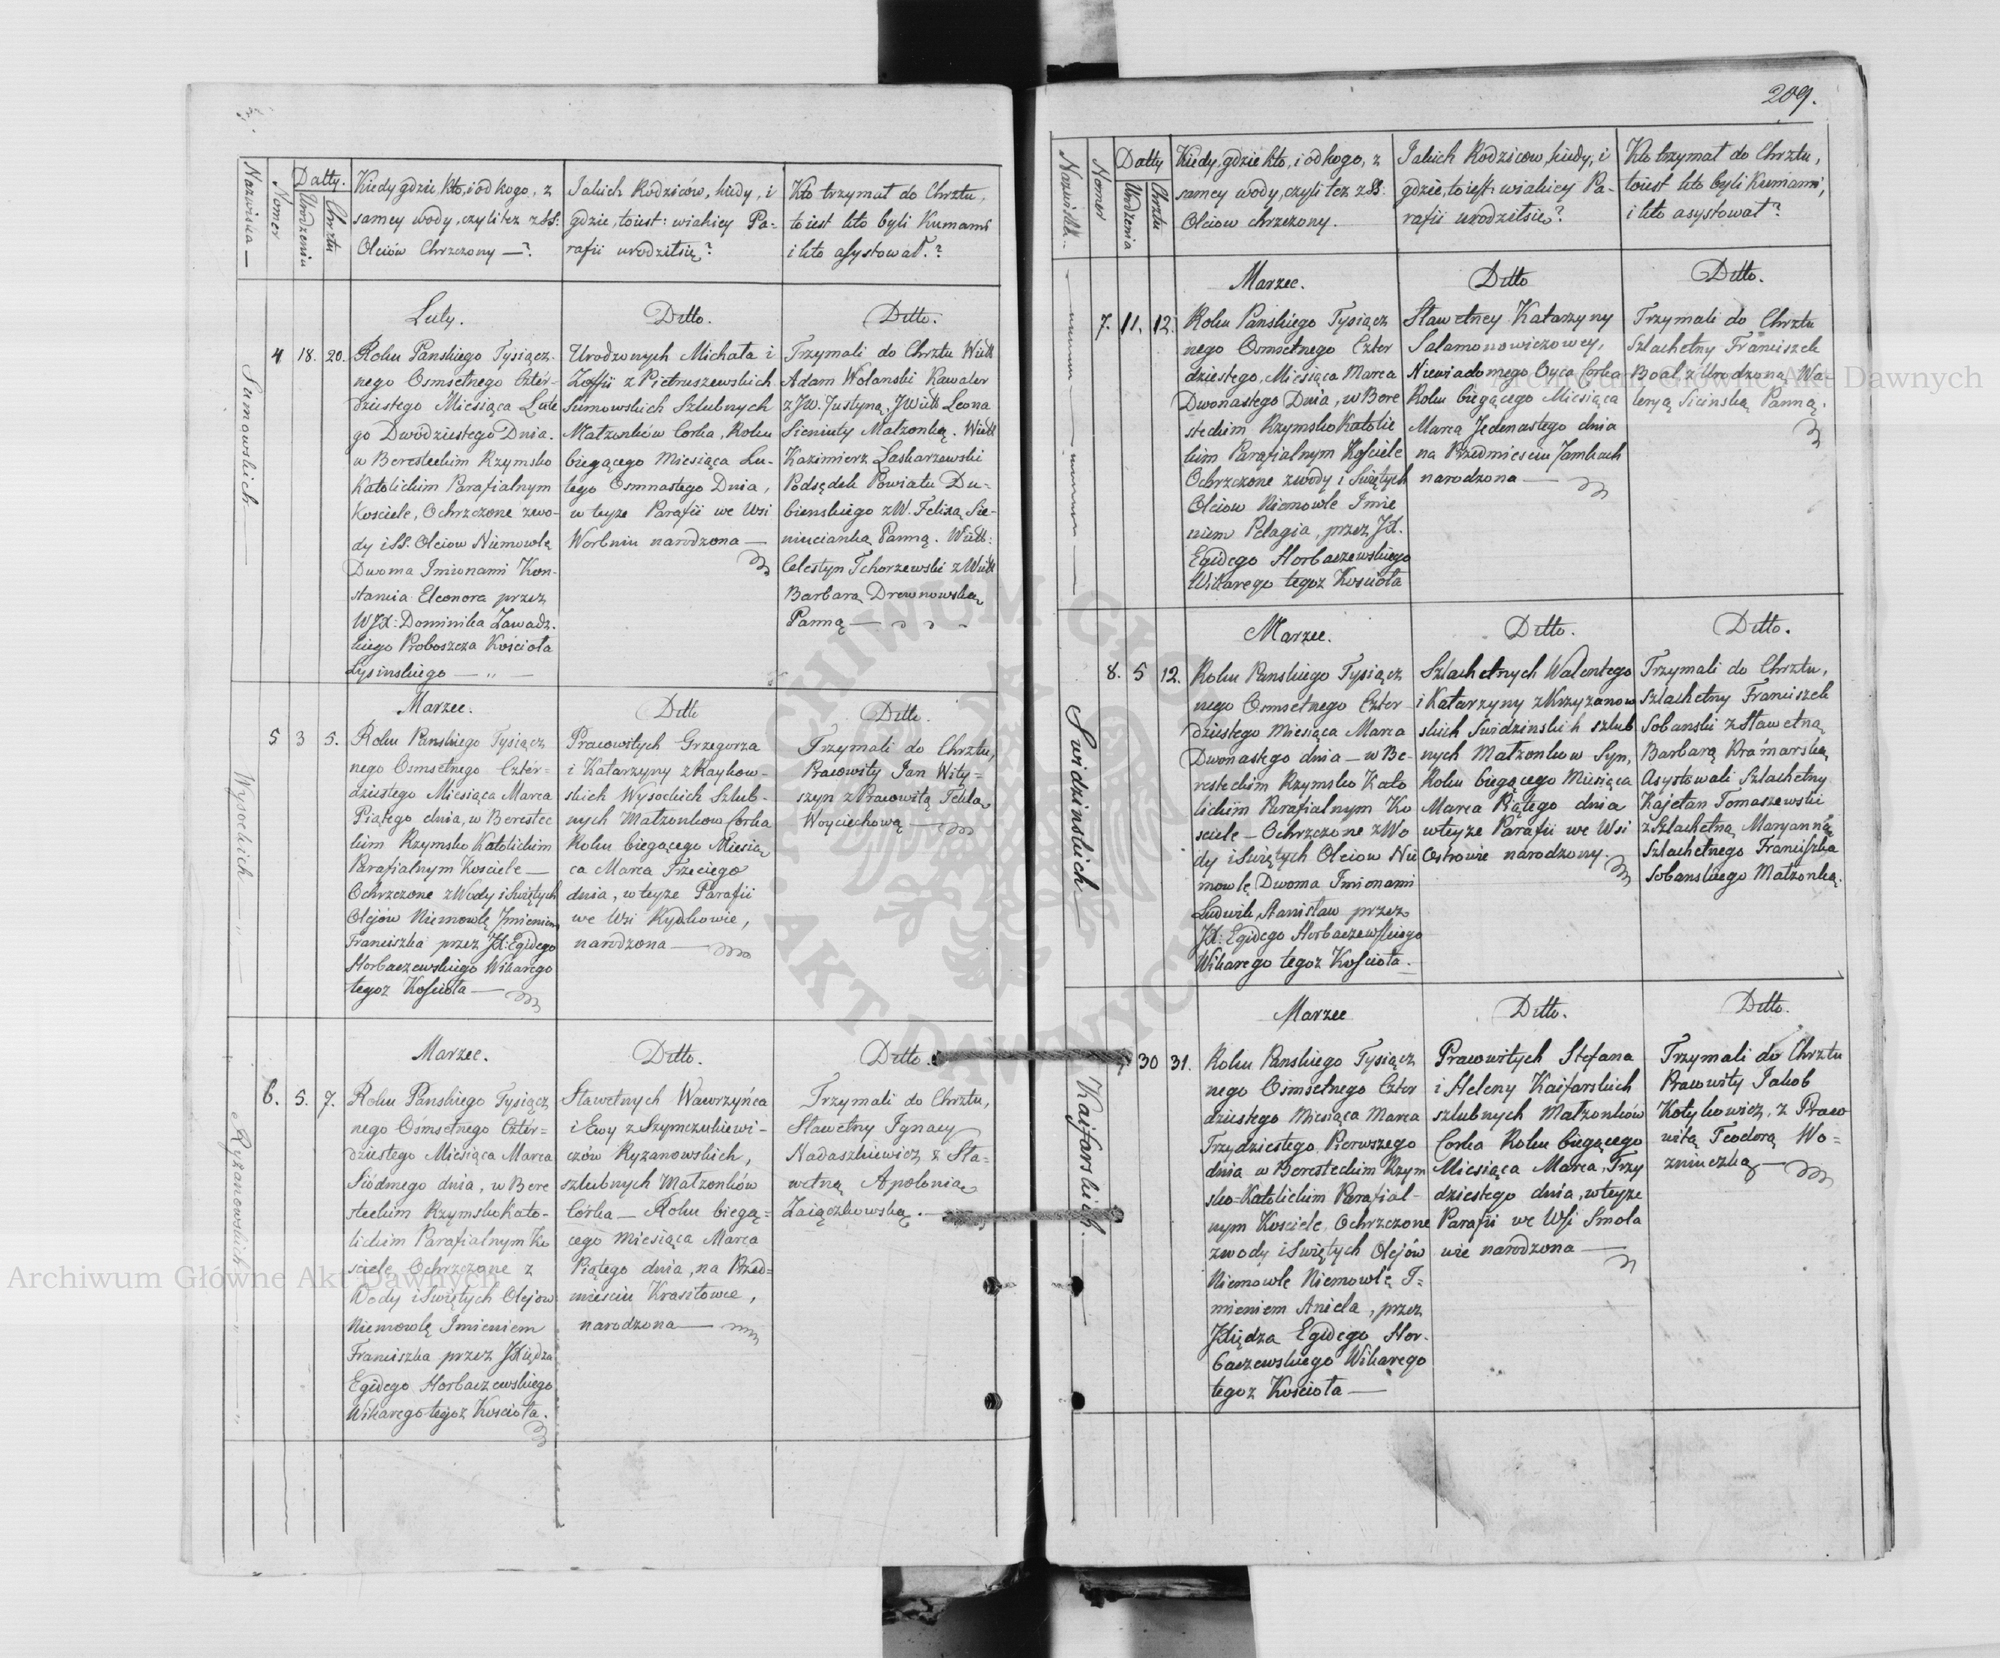 209.
Nazwiska
Nomer
Datty.
Urodzenia
Chrztu
Kiedy, gdzie kto, i od kogo, z
samey wody, czyli tez z SS.
Oleiów Chrzczony —?
Jakich Rodziców, kiedy, i
gdzie, toiest: wiakiey Pa-
rafii urodziłsię?
Kto trzymał do Chrztu,
toiest kto byli Kumami
i kto asystował.?
Sumowskich
4
18.
20.
Luty.
Roku Panskiego Tysiącz-
nego Osmsetnego Cztér-
dziestego Miesiąca Lute
go Dwódziestego Dnia.
w Beresteckim Rzymsko
Katolickim Parafialnym
Kosciele, Ochrzczone zwo-
dy i SS. Oleiow Niemowlę
Dwoma Imionami Kon-
stancia Eleonora przez
WJX: Dominika Zawadz-
kiego Proboszcza Kościoła
Łysinskiego — „ —
Ditto.
Urodzonych Michała i
Zoffii z Pietruszewskich
Sumowskich Szlubnych
Małzonków Corka, Roku
biegącego Miesiąca Lu-
tego Osmnastego Dnia,
w teyze Parafii we Wsi
Worbniu narodzona —
Ditto.
Trzymali do Chrztu Wielk
Adam Wolanski Kawaler
z JW. Justyną, JWielk Leona
Sieniuty Małzonką. Wielk
Kazimierz Laskarzewski
Podsędek Powiatu Du-
bienskiego z W. Felixą Sie-
niucianką Panną. Wielk:
Celestyn Tchorzewski z Wielk
Barbarą Drewnowską
Panną —
Wysockich
5
3
5.
Marzec.
Roku Panskiego Tysiącz
nego Osmsetnego Cztér-
dziestego Miesiąca Marca
Piątego dnia, w Berestec
kim Rzymsko Katolickim
Parafialnym Kosciele —
Ochrzczone z Wody i Swiętych
Olejów Niemowlę Imieniem
Franciszka przez JX: Egidego
Horbaczewskiego Wikarego
tegoz Kościoła —
Ditto
Pracowitych Grzegorza
i Katarzyny z Raykow-
skich Wysockich Szlub-
nych Małzonkow Corka
Roku biegącego Miesią
ca Marca Trzeciego
dnia, w teyze Parafii
we Wsi Rydkowie,
narodzona —
Ditto.
Trzymali do Chrztu,
Pracowity Jan Wity-
szyn z Pracowitą Teklą
Woyciechową —
Ryzanowskich
6.
5.
7.
Marzec.
Roku Panskiego Tysiącz
nego Ósmsetnego Cztér=
dziestego Miesiąca Marca
Siódmego dnia, w Bere
steckim Rzymsko Kato-
lickim Parafialnym Ko
sciele Ochrzczone z
Wody i Swiętych Olejow
Niemowlę Imieniem
Franciszka przez JXiędza
Egidego Horbaczewskiego
Wikarego tegoz Kościoła.
Ditto.
Sławetnych Wawrzyńca
i Ewy z Szymczukiewi-
czów Ryzanowskich,
szlubnych Małzonków
Córka — Roku biegą=
cego Miesiąca Marca
Piątego dnia, na Przed=
mieściu Krasiłowce,
narodzona —
Ditto.
Trzymali do Chrztu,
Sławetny Ignacy
Nadaszkiewicz z Sła-
wetną Apolonią
Zaiączkowską. —
Nazwisk
Nomer
Datty
Urodzenia
Chrztu
Kiedy, gdzie kto, i od kogo, z
samey wody, czyli tez z SS.
Oleiow chrzczony.
Jakich Rodzicow, kiedy, i
gdzie, toiest: wiakiey Pa-
rafii urodziłsię?
Kto trzymał do Chrztu,
toiest kto byli Kumami,
i kto asystował?
7.
11.
12.
Marzec.
Roku Panskiego Tysiącz
nego Osmsetnego Czter
dziestego, Miesiąca Marca
Dwonastego Dnia, w Bere
steckim Rzymsko Katolic
kim Parafialnym Kościele
Ochrzczone zwody i Swiętych
Oleiow Niemowle Imie
niem Pelagia, przez JX.
Egidego Horbaczewskiego
Wikarego tegoz Kościoła
Ditto
Sławetney Katarzyny
Salamonowiczowey,
Niewiadomego Oyca Corka
Roku biegącego Miesiąca
Marca Jedenastego dnia
na Przedmiesciu Zamkach
narodzona —
Ditto.
Trzymali do Chrztu
Szlachetny Franciszek
Boal z Urodzoną Wa-
leryą Sicinską Panną.
Swidzinskich
8.
5
12.
Marzec.
Roku Panskiego Tysiącz
nego Osmsetnego Czter-
dziestego Miesiąca Marca
Dwonastego dnia — w Be-
resteckim Rzymsko Kato
lickim Parafialnym Ko
sciele — Ochrzczone z Wo
dy i Swiętych Oleiow Nie
mowlę Dwoma Imionami
Ludwik, Stanisław przez
JX: Egidego Horbaczewskiego
Wikarego tegoz Kościoła.
Ditto.
Szlachetnych Walentego
i Katarzyny z Krzyzanow
skich Swidzinskich szlub
nych Małzonkow Syn,
Roku biegącego Miesiąca
Marca Piątego dnia
w teyze Parafii we Wsi
Ostrowie narodzony.
Ditto.
Trzymali do Chrztu,
Szlachetny Franciszek
Sobanski z Sławetną
Barbarą Kramarską
Asystowali Szlachetny
Kajetan Tomaszewski
z Szlachetną Maryanną
Szlachetnego Franciszka
Sobanskiego Małzonką.
Kaifarskich
30
31.
Marzec
Roku Panskiego Tysiącz
nego Osmsetnego Czter
dziestego Miesiąca Marca
Trzydziestego Pierwszego
dnia w Beresteckim Rzym
sko=Katolickim Parafial-
nym Kosciele, Ochrzczone
zwody i Swiętych Olejów
Niemowle Niemowlę I=
mieniem Aniela, przez
JXiędza Egidego Hor-
baczewskiego Wikarego
tegoz Kościoła —
Ditto.
Pracowitych Stefana
i Heleny Kaifarskich
szlubnych Małzonków
Corka Roku biegącego
Miesiąca Marca, Trzy
dziestego dnia, w teyze
Parafii we Wsi Smola
wie narodzona —
Ditto.
Trzymali do Chrztu
Pracowity Jakob
Kotykowicz, z Praco
witą Teodorą Wo=
zniuczką —
Archiwum Główne Akt Dawnych
Archiwum Główne Akt Dawnych
ARCHIWUM GŁÓWNE AKT DAWNYCH